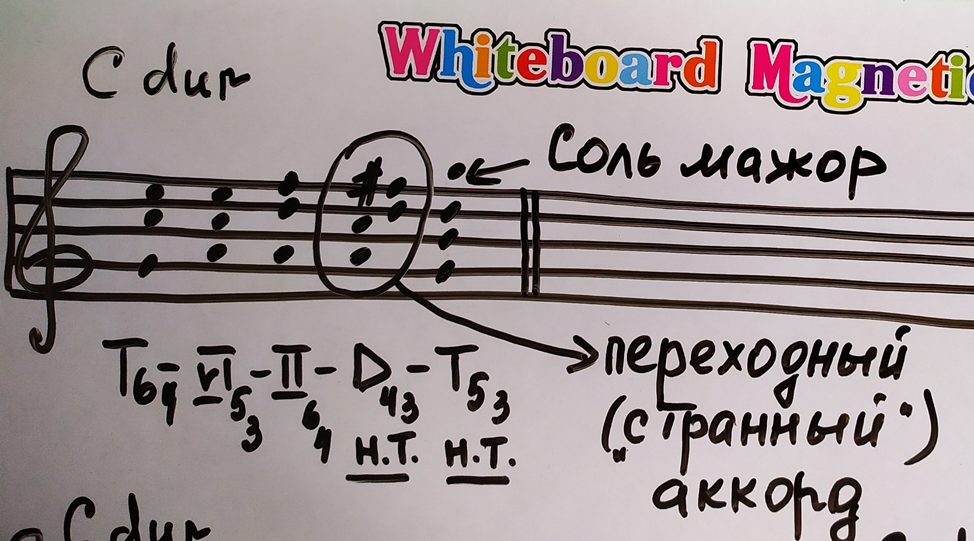 Whiteboard Magnetic
C dur
Соль мажор
T64-VI53-II64-D43-T53
н.т. н.т.
переходный
("странный")
аккорд
C dur